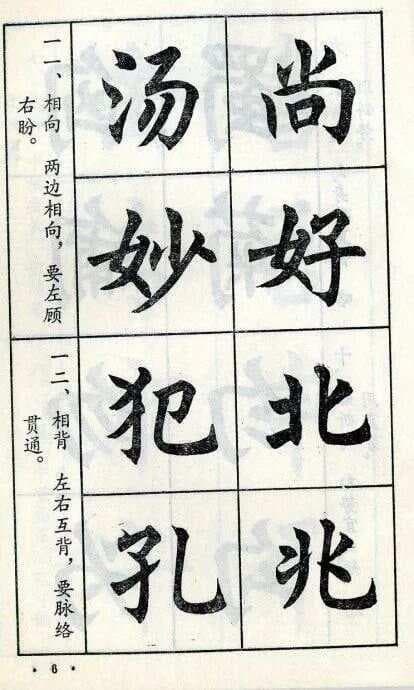 尚好北兆
汤妙犯孔
一一、相向 两边相向，要左顾
右盼。
一二、相背 左右互背，要脉络
贯通。
· 6 ·